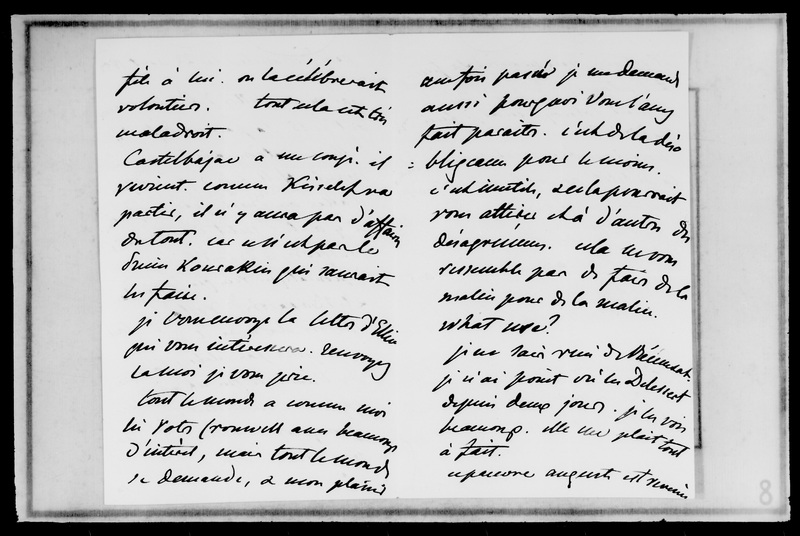 fils à lui. on la célébrerait
volontiers. tout cela est très
maladroit.
Castelbajac a un congé. il
revient. comme Kisseleff va
partir, il n'y aura pas d'affaires
du tout. car ce n'est pas le
Kourakin qui saurait
les faire.
je vous envoye la lettre d'Ellice
qui vous intéressera. renvoyez
la moi je vous prie.
tout le monde a comme moi
lu votre Cromwell avec beaucoup
d'intérêt, mais tout le monde
se demande, et mon plaisir
une fois passé je me demande
aussi pourquoi vous l'avez
fait paraître. c'est de la déso
= bligeance pour le moins.
c'est inutile, & cela pourrait
vous attirer et à d'autres des
désagréments. cela ne vous
ressemble pas de faire de la
malice pour de la malice.
what use?
je ne sais rien de
je n'ai point vu les Delessert
depuis deux jours. je les vois
beaucoup. elle me plait tout
à fait.
ce pauvre auguste est revenu
8